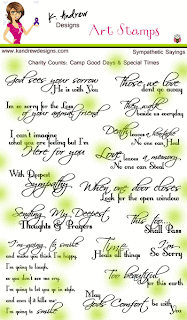 K. Andrew
Designs
Art Stamps
www.kandrewdesigns.com
Sympathetic Sayings
Charity Counts: Camp Good Days & Special Times
God sees your sorrow
He is with you
Those we love
don't go away
I'm so sorry for the loss
of your animal friend
They walk
beside us everyday
I can't imagine
what you are feeling but I'm
Here for you
Death leaves a heartache
No one can Heal
Love leaves a memory
No one can Steal
With Deepest
Sympathy
When one door closes
Look for the open window
Sending My Deepest
Thoughts & Prayers
This too
Shall Pass
I'm going to smile
and make you think I'm happy
I'm going to laugh,
so you don't see me cry
I'm going to let you go in style
and even if it kills me
I'm going to smile
Time
Heals all things
I'm
So Sorry
Too beautiful
for this earth
May
God's Comfort be with
You